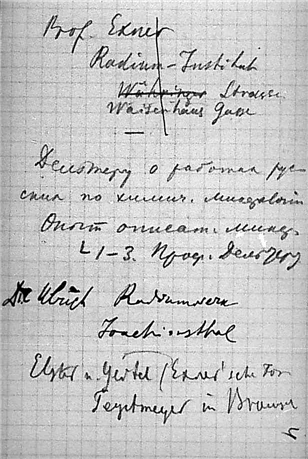 Prof. Exner
Radium-Institut
Währinger Strasse
Waisenhaus Gasse
Дельтеру о работах рус-
ских по химич. минералогии
Опыт описат. минер.
L 1–3. Проф. Дельтеру
Dr Ulrich Radiumwerk
Joachimsthal
Elster u. Geitel (Exner'sche For
in Braunsc